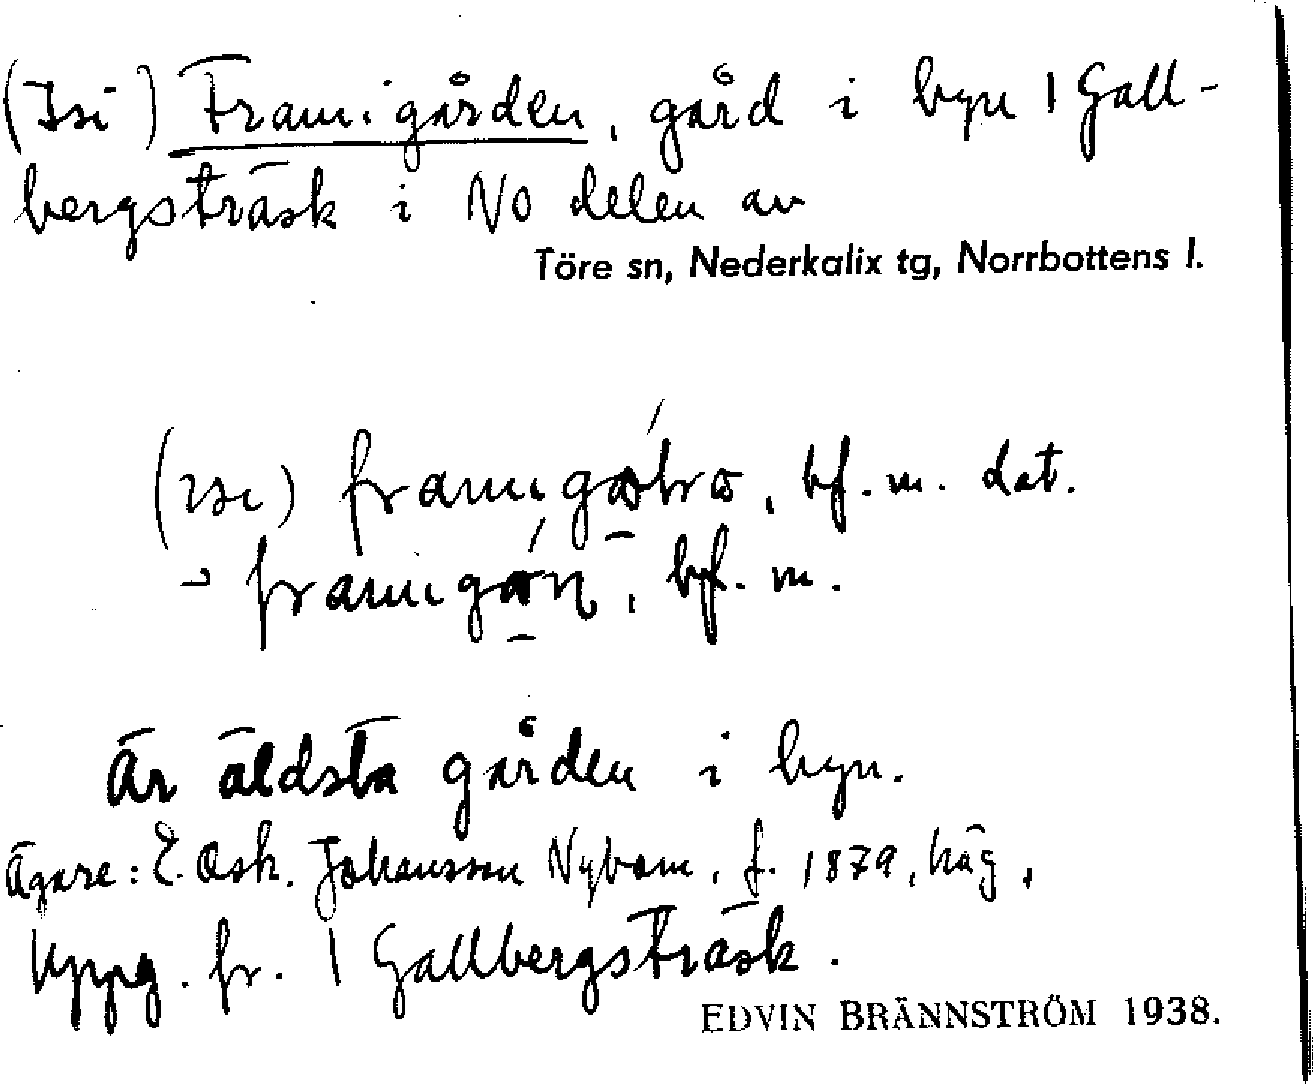 (Isi) Framigården, gård i byn 1 Gall-
bergsträsk i NO delen av
Töre sn, Nederkalix tg, Norrbottens l.
bf. m. dat.
bf. m.
Är äldsta gården i byn.
Ägare: E. Osk. Johansson Nybom, f. 1879, häg,
Uppg. fr. 1 Gallbergsträsk.
EDVIN BRÄNNSTRÖM 1938.